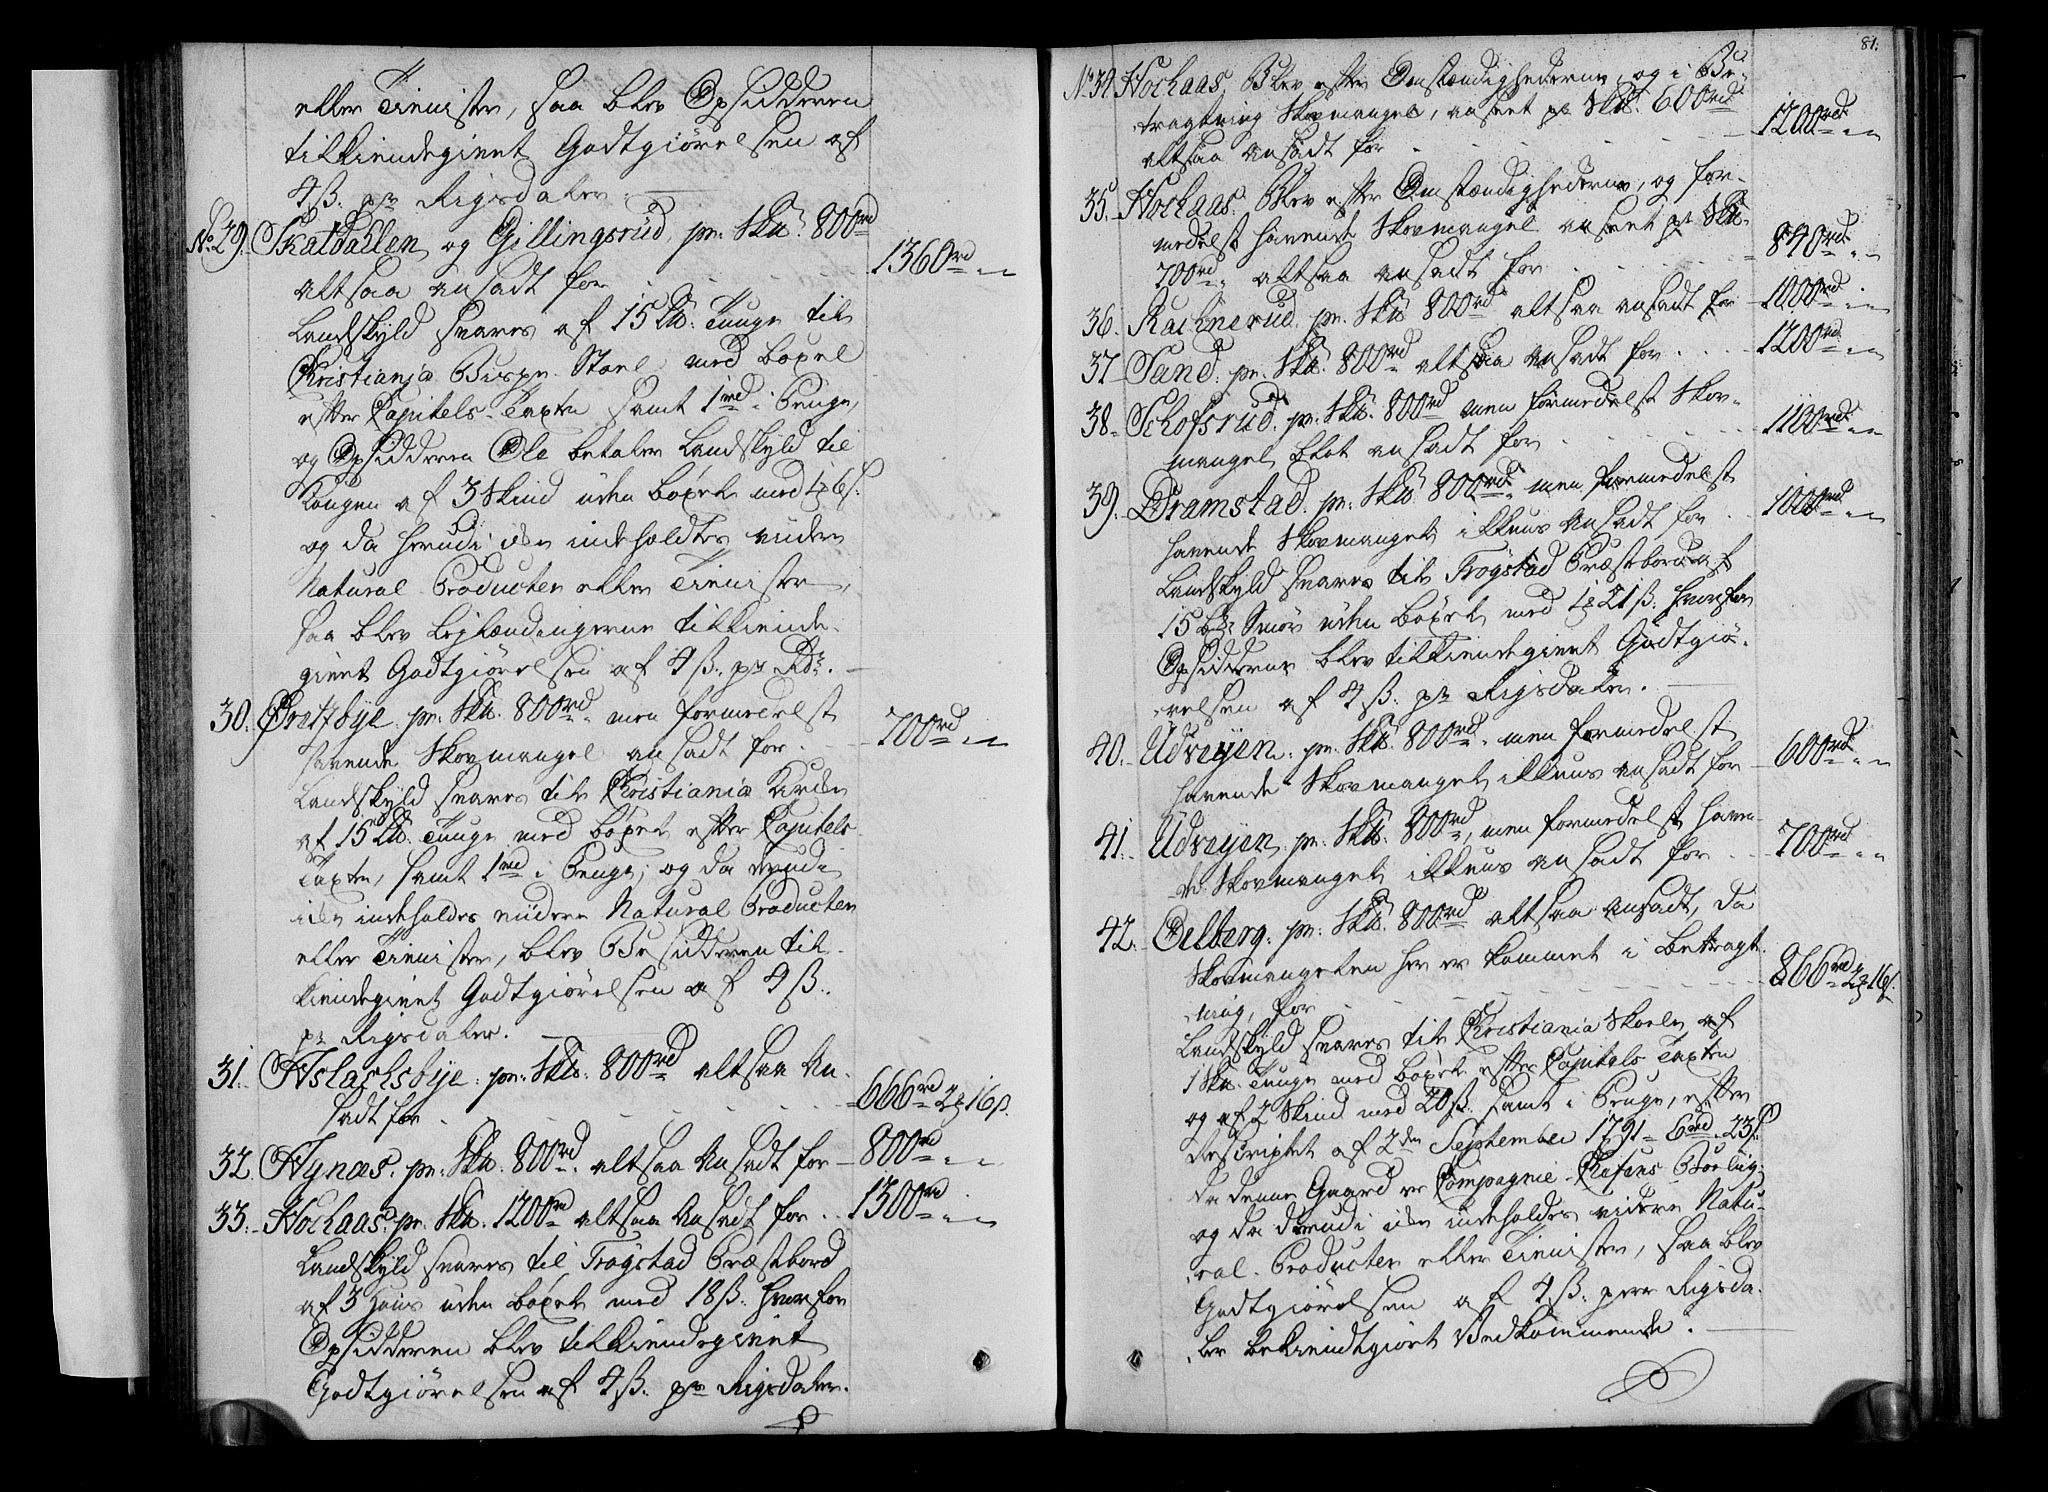 eller Tienester, saa blev Opsidderen
tilkiendegivet Godtgiørelsen af
4 ß. pr Rigsdaler.
No 29. Skatdahlen og Gillingsrud pr. Skd. 800rd
altsaa ansadt for . . . 1360rd „ „
Landskyld svares af 15 Lb. Tunge til
Christiania Bispe Stoel med bøxel
efter Capitels-Taxten samt 1rd i Penge,
og Opsidderen Ole betaler Landskyld til
Kongen af 3 Skind uden bøxel med 6 ß.
og da herudi ei indeholdes videre
Natural Producter eller Tienester,
saa blev Leylændingerne tilkiende-
givet Godtgiørelsen af 4 ß. pr Rdr.
30. Grættbye pr. Skd. 800rd „ men formedelst
havende Skovmangel ansadt for . . 700rd „ „
Landskyld svares til Christiania Kirke
af 15 Lb. Tunge med bøxel efter Capitels
Taxten, samt 1rd i Penge, og da derudi
ei indeholdes videre Natural Producter
eller Tienester, blev Besidderen til-
kiendegivet Godtgiørelsen af 4 ß.
pr Rigsdaler.
31. Aslachsbye pr. Skd. 800rd altsaa An-
sadt for . . . 666rd 2 16 ß.
32. Hynæs. pr. Skd. 800rd. altsaa Ansadt for 800rd „ „
33. Hochaas. pr. Skd. 1200rd altsaa Ansadt for . . 1300rd „ „
Landskyld svares til Trøgstad Præstbord
af 3 Huus uden bøxel med 18 ß. hvorfor
Opsidderen blev tilkiendegivet
Godtgiørelsen af 4 ß. pr Rigsdaler.
81.
No 34 Hochaas. Blev efter Omstændighederne, og i Be-
tragtning Skovmangel, anseet pr Skd. 600rd
altsaa Ansadt for . . . 1200rd „ „
35. Hochaas. Blev efter Omstændighederne, og for-
medelst havende Skovmangel anseet pr Skd.
700rd „ altsaa ansadt for . . . 840rd „ „
36. Rachnerud. pr. Skd. 800rd altsaa ansadt for 1000rd „ „
37 Sand. pr. Skd. 800rd altsaa Ansadt for . . . 1200rd „ „
38. Schofsrud. pr. Skd. 800rd men formedelst Skov-
mangel blot ansadt for . . . 1100rd „ „
39. Dramstad. pr. Skd. 800rd „ men formedelst
havende Skovmangel ikkuns Ansadt for . . 1000rd „ „
Landskyld svares til Trøgstad Præstbord af
15 Smør uden bøxel med 21 ß. hvorfor
Opsidderne blev tilkiendegivet Godtgiø-
relsen af 4 ß. pr Rigsdaler.
40. Udveyen. pr. Skd. 800rd „ men formedelst
havende Skovmangel ikkuns ansadt for 600rd „ „
41. Udveyen. pr. Skd. 800rd, men formedelst haven-
de Skovmangel ikkuns Ansadt for . . 700rd „ „
42. Oelberg. pr. Skd. 800rd altsaa Ansadt, da
Skovmangelen her er kommet i betragt-
ning, for . . . 866rd 2 16 ß.
Landskyld svares til Christiania Skoele af
1 Skd. Tunge med bøxel efter Capitels Taxten
og af 2 Skind med 20 ß. samt i Penge, efter
Rescriptet af 2den September 1791 6rd 23 ß
da denne Gaard er Compagnie Chefens Boelig,
og da derudi ei indeholdes videre Natu-
ral Producter eller Tienester, saa blev
Godtgiørelsen af 4 ß. perr Rigsda-
ler bekiendtgiort Vedkommende.